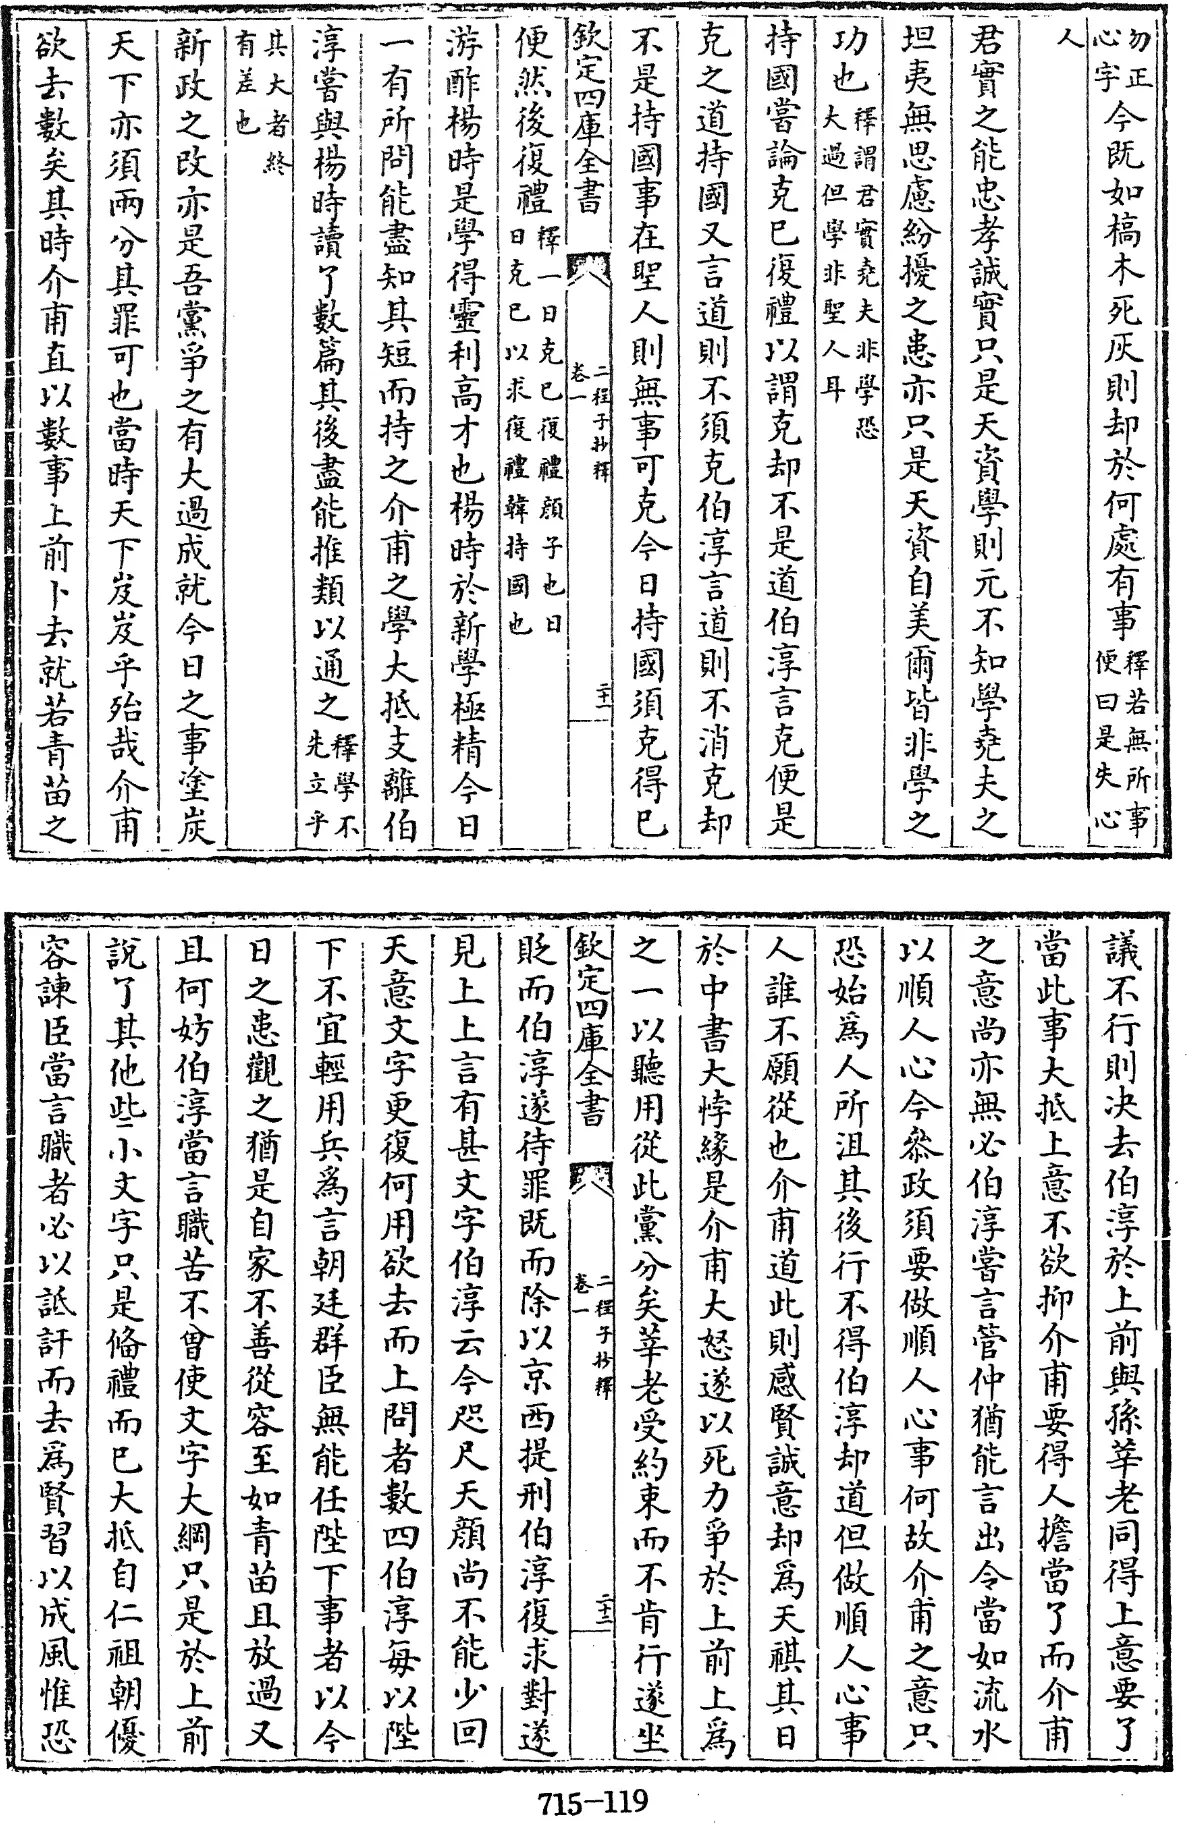 勿正
心字
今既如槁木死灰則却於何處有事
釋若無所事
便曰是失心
人
君實之能忠孝誠實只是天資學則元不知學堯夫之
坦夷無思慮紛擾之患亦只是天資自美爾皆非學之
功也
釋謂君實堯夫非學恐
大過但學非聖人耳
持國嘗論克已復禮以謂克却不是道伯淳言克便是
克之道持國又言道則不須克伯淳言道則不消克却
不是持國事在聖人則無事可克今日持國須克得已
欽定四庫全書
二程子抄釋
卷一
二十一
便然後復禮
釋一日克已復禮顔子也日
日克已以求復禮韓持國也
游酢楊時是學得靈利高才也楊時於新學極精今日
一有所問能盡知其短而持之介甫之學大抵支離伯
淳嘗與楊時讀了數篇其後盡能推類以通之
釋學不
先立乎
其大者終
有差也
新政之改亦是吾黨爭之有大過成就今日之事塗炭
天下亦須兩分其罪可也當時天下岌岌乎殆哉介甫
欲去數矣其時介甫直以數事上前卜去就若青苗之
議不行則决去伯淳於上前與孫莘老同得上意要了
當此事大抵上意不欲抑介甫要得人擔當了而介甫
之意尚亦無必伯淳嘗言管仲猶能言出令當如流水
以順人心今叅政須要做順人心事何故介甫之意只
恐始爲人所沮其後行不得伯淳却道但做順人心事
人誰不願從也介甫道此則感賢誠意却爲天祺其日
於中書大悖緣是介甫大怒遂以死力爭於上前上爲
之一以聽用從此黨分矣莘老受約束而不肯行遂坐
欽定四庫全書
二程子抄釋
卷一
二十二
貶而伯淳遂待罪既而除以京西提刑伯淳復求對遂
見上上言有甚文字伯淳云今咫尺天顔尚不能少回
天意文字更復何用欲去而上問者數四伯淳每以陛
下不宜輕用兵爲言朝廷群臣無能任陛下事者以今
日之患觀之猶是自家不善從容至如青苗且放過又
且何妨伯淳當言職苦不曾使文字大綱只是於上前
說了其他些小文字只是偹禮而已大抵自仁祖朝優
容諫臣當言職者必以詆訐而去爲賢習以成風惟恐
715-119